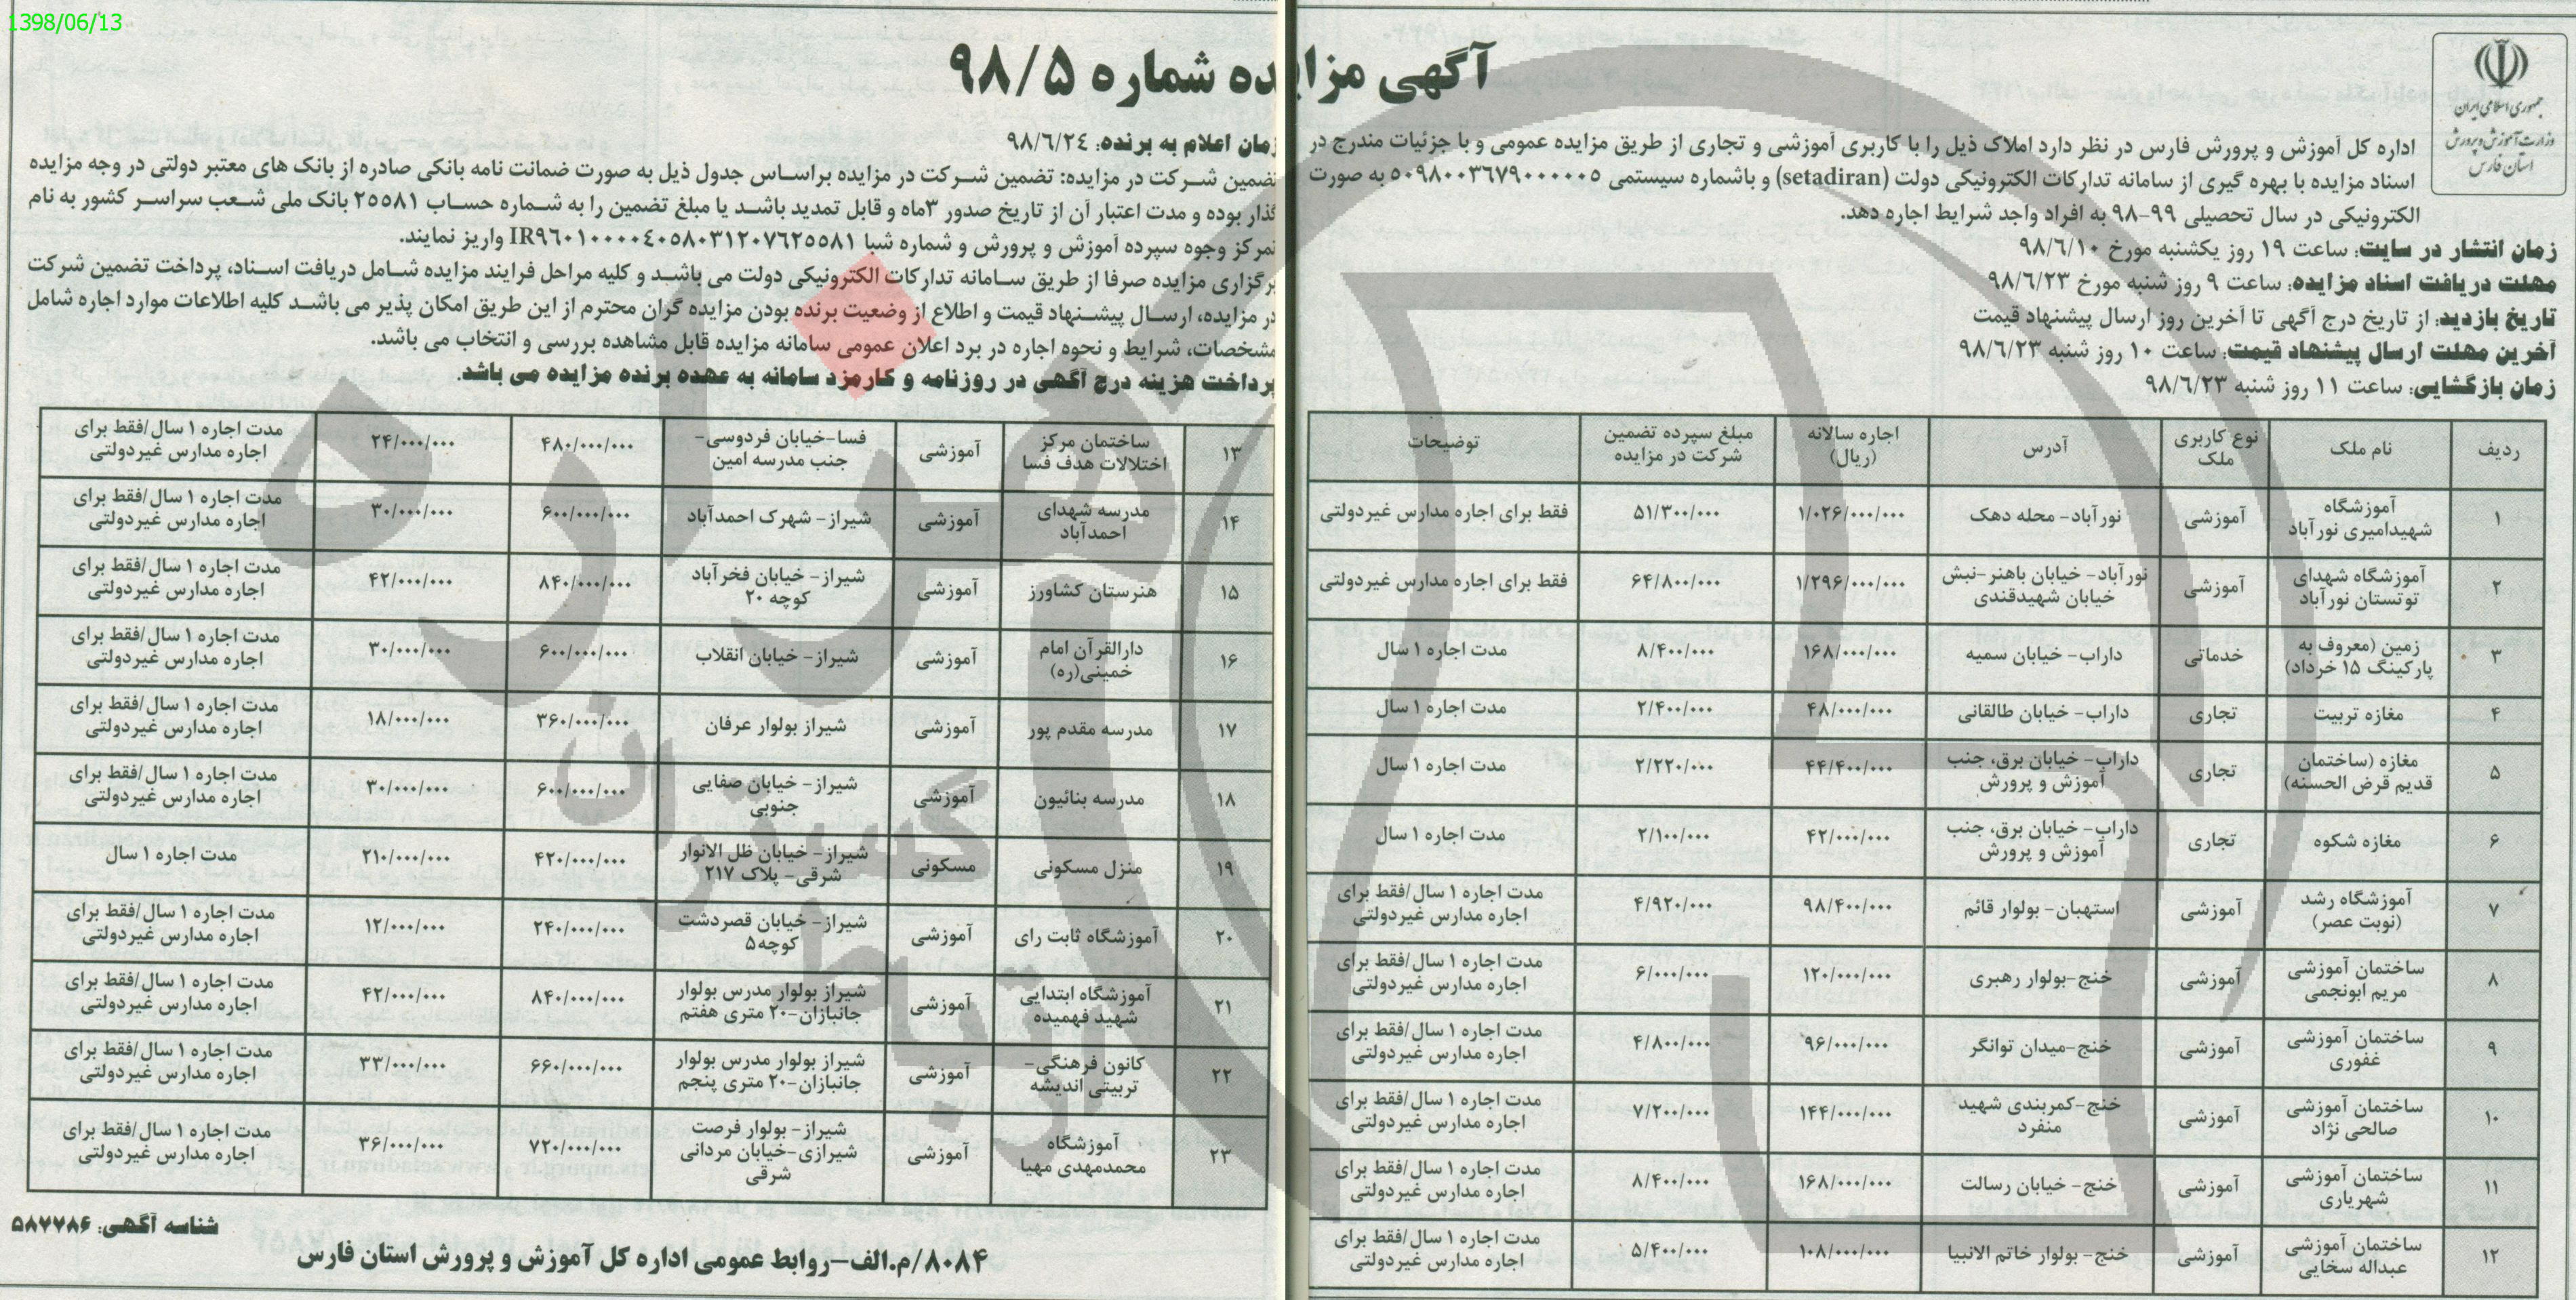 1398/06/13
آگهی مزایده شماره ۹۸/۵
جمهوری اسلامی ایران
وزارت آموزش و پرورش
استان فارس
اداره کل آموزش و پرورش فارس در نظر دارد املاک ذیل را با کاربری آموزشی و تجاری از طریق مزایده عمومی و با جزئیات مندرج در
اسناد مزایده با بهره گیری از سامانه تدارکات الکترونیکی دولت (setadiran) و باشماره سیستمی ۵۰۹۸۰۰۳۶۷۹۰۰۰۰۰۵ به صورت
الکترونیکی در سال تحصیلی ۹۹-۹۸ به افراد واجد شرایط اجاره دهد.
زمان انتشار در سایت: ساعت ۱۹ روز یکشنبه مورخ ۹۸/۶/۱۰
مهلت دریافت اسناد مزایده: ساعت ۹ روز شنبه مورخ ۹۸/۶/۲۳
تاریخ بازدید: از تاریخ درج آگهی تا آخرین روز ارسال پیشنهاد قیمت
آخرین مهلت ارسال پیشنهاد قیمت: ساعت ۱۰ روز شنبه ۹۸/۶/۲۳
زمان بازگشایی: ساعت ۱۱ روز شنبه ۹۸/۶/۲۳
زمان اعلام به برنده: ۹۸/۶/۲۴
تضمین شرکت در مزایده: تضمین شرکت در مزایده براساس جدول ذیل به صورت ضمانت نامه بانکی صادره از بانک های معتبر دولتی در وجه مزایده
گذار بوده و مدت اعتبار آن از تاریخ صدور ۳ماه و قابل تمدید باشد یا مبلغ تضمین را به شماره حساب ۲۵۵۸۱ بانک ملی شعب سراسر کشور به نام
تمرکز وجوه سپرده آموزش و پرورش و شماره شبا IR۹۶۰۱۰۰۰۰۴۰۵۸۰۳۱۲۰۷۶۲۵۵۸۱ واریز نمایند.
برگزاری مزایده صرفا از طریق سامانه تدارکات الکترونیکی دولت می باشد و کلیه مراحل فرایند مزایده شامل دریافت اسناد، پرداخت تضمین شرکت
در مزایده، ارسال پیشنهاد قیمت و اطلاع از وضعیت برنده بودن مزایده گران محترم از این طریق امکان پذیر می باشد کلیه اطلاعات موارد اجاره شامل
مشخصات، شرایط و نحوه اجاره در برد اعلان عمومی سامانه مزایده قابل مشاهده بررسی و انتخاب می باشد.
پرداخت هزینه درج آگهی در روزنامه و کارمزد سامانه به عهده برنده مزایده می باشد.
ردیف نام ملک نوع کاربری ملک آدرس اجاره سالانه (ریال) مبلغ سپرده تضمین شرکت در مزایده توضیحات
۱ آموزشگاه شهیدامیری نورآباد آموزشی نورآباد- محله دهک ۱/۰۲۶/۰۰۰/۰۰۰ ۵۱/۳۰۰/۰۰۰ فقط برای اجاره مدارس غیردولتی
۲ آموزشگاه شهدای توتستان نورآباد آموزشی نورآباد- خیابان باهنر-نبش خیابان شهیدقندی ۱/۲۹۶/۰۰۰/۰۰۰ ۶۴/۸۰۰/۰۰۰ فقط برای اجاره مدارس غیردولتی
۳ زمین (معروف به پارکینگ ۱۵ خرداد) خدماتی داراب- خیابان سمیه ۱۶۸/۰۰۰/۰۰۰ ۸/۴۰۰/۰۰۰ مدت اجاره ۱ سال
۴ مغازه تربیت تجاری داراب- خیابان طالقانی ۴۸/۰۰۰/۰۰۰ ۲/۴۰۰/۰۰۰ مدت اجاره ۱ سال
۵ مغازه (ساختمان قدیم قرض الحسنه) تجاری داراب- خیابان برق، جنب آموزش و پرورش ۴۴/۴۰۰/۰۰۰ ۲/۲۲۰/۰۰۰ مدت اجاره ۱ سال
۶ مغازه شکوه تجاری داراب- خیابان برق، جنب آموزش و پرورش ۴۲/۰۰۰/۰۰۰ ۲/۱۰۰/۰۰۰ مدت اجاره ۱ سال
۷ آموزشگاه رشد (نوبت عصر) آموزشی استهبان- بولوار قائم ۹۸/۴۰۰/۰۰۰ ۴/۹۲۰/۰۰۰ مدت اجاره ۱ سال/فقط برای اجاره مدارس غیردولتی
۸ ساختمان آموزشی مریم ابونجمی آموزشی خنج-بولوار رهبری ۱۲۰/۰۰۰/۰۰۰ ۶/۰۰۰/۰۰۰ مدت اجاره ۱ سال/فقط برای اجاره مدارس غیردولتی
۹ ساختمان آموزشی غفوری آموزشی خنج-میدان توانگر ۹۶/۰۰۰/۰۰۰ ۴/۸۰۰/۰۰۰ مدت اجاره ۱ سال/فقط برای اجاره مدارس غیردولتی
۱۰ ساختمان آموزشی صالحی نژاد آموزشی خنج-کمربندی شهید منفرد ۱۴۴/۰۰۰/۰۰۰ ۷/۲۰۰/۰۰۰ مدت اجاره ۱ سال/فقط برای اجاره مدارس غیردولتی
۱۱ ساختمان آموزشی شهریاری آموزشی خنج- خیابان رسالت ۱۶۸/۰۰۰/۰۰۰ ۸/۴۰۰/۰۰۰ مدت اجاره ۱ سال/فقط برای اجاره مدارس غیردولتی
۱۲ ساختمان آموزشی عبداله سخایی آموزشی خنج- بولوار خاتم الانبیا ۱۰۸/۰۰۰/۰۰۰ ۵/۴۰۰/۰۰۰ مدت اجاره ۱ سال/فقط برای اجاره مدارس غیردولتی
۱۳ ساختمان مرکز اختلالات هدف فسا آموزشی فسا-خیابان فردوسی- جنب مدرسه امین ۴۸۰/۰۰۰/۰۰۰ ۲۴/۰۰۰/۰۰۰ مدت اجاره ۱ سال/فقط برای اجاره مدارس غیردولتی
۱۴ مدرسه شهدای احمدآباد آموزشی شیراز- شهرک احمدآباد ۶۰۰/۰۰۰/۰۰۰ ۳۰/۰۰۰/۰۰۰ مدت اجاره ۱ سال/فقط برای اجاره مدارس غیردولتی
۱۵ هنرستان کشاورز آموزشی شیراز- خیابان فخرآباد کوچه ۲۰ ۸۴۰/۰۰۰/۰۰۰ ۴۲/۰۰۰/۰۰۰ مدت اجاره ۱ سال/فقط برای اجاره مدارس غیردولتی
۱۶ دارالقرآن امام خمینی(ره) آموزشی شیراز- خیابان انقلاب ۶۰۰/۰۰۰/۰۰۰ ۳۰/۰۰۰/۰۰۰ مدت اجاره ۱ سال/فقط برای اجاره مدارس غیردولتی
۱۷ مدرسه مقدم پور آموزشی شیراز بولوار عرفان ۳۶۰/۰۰۰/۰۰۰ ۱۸/۰۰۰/۰۰۰ مدت اجاره ۱ سال/فقط برای اجاره مدارس غیردولتی
۱۸ مدرسه بنائیون آموزشی شیراز- خیابان صفایی جنوبی ۶۰۰/۰۰۰/۰۰۰ ۳۰/۰۰۰/۰۰۰ مدت اجاره ۱ سال/فقط برای اجاره مدارس غیردولتی
۱۹ منزل مسکونی مسکونی شیراز- خیابان ظل الانوار شرقی- پلاک ۲۱۷ ۴۲۰/۰۰۰/۰۰۰ ۲۱۰/۰۰۰/۰۰۰ مدت اجاره ۱ سال
۲۰ آموزشگاه ثابت رای آموزشی شیراز- خیابان قصردشت کوچه۵ ۲۴۰/۰۰۰/۰۰۰ ۱۲/۰۰۰/۰۰۰ مدت اجاره ۱ سال/فقط برای اجاره مدارس غیردولتی
۲۱ آموزشگاه ابتدایی شهید فهمیده آموزشی شیراز بولوار مدرس بولوار جانبازان-۲۰ متری هفتم ۸۴۰/۰۰۰/۰۰۰ ۴۲/۰۰۰/۰۰۰ مدت اجاره ۱ سال/فقط برای اجاره مدارس غیردولتی
۲۲ کانون فرهنگی- تربیتی اندیشه آموزشی شیراز بولوار مدرس بولوار جانبازان-۲۰ متری پنجم ۶۶۰/۰۰۰/۰۰۰ ۳۳/۰۰۰/۰۰۰ مدت اجاره ۱ سال/فقط برای اجاره مدارس غیردولتی
۲۳ آموزشگاه محمدمهدی مهیا آموزشی شیراز- بولوار فرصت شیرازی-خیابان مردانی شرقی ۷۲۰/۰۰۰/۰۰۰ ۳۶/۰۰۰/۰۰۰ مدت اجاره ۱ سال/فقط برای اجاره مدارس غیردولتی
شناسه آگهی: ۵۸۷۷۸۶
۸۰۸۴/م.الف-روابط عمومی اداره کل آموزش و پرورش استان فارس